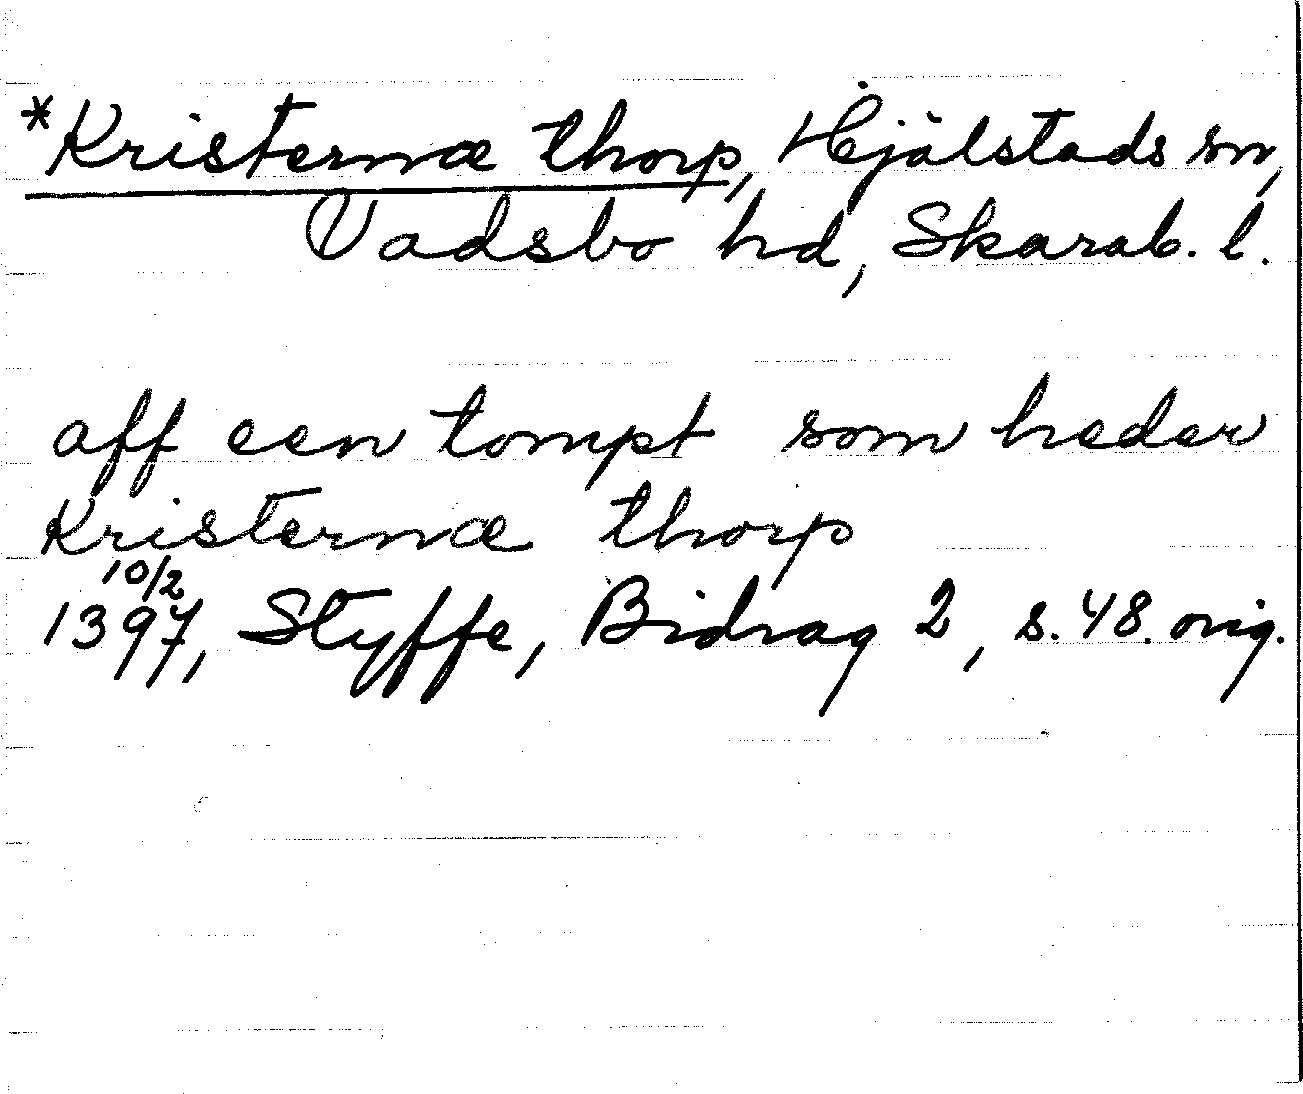 *Kristernæ thorp, Hjälstads sn,
Vadsbo hd, Skarab. l.
aff een tompt som heder
Kristernæ thorp
10/2
1397, Styffe, Bidrag 2, s. 48. orig.